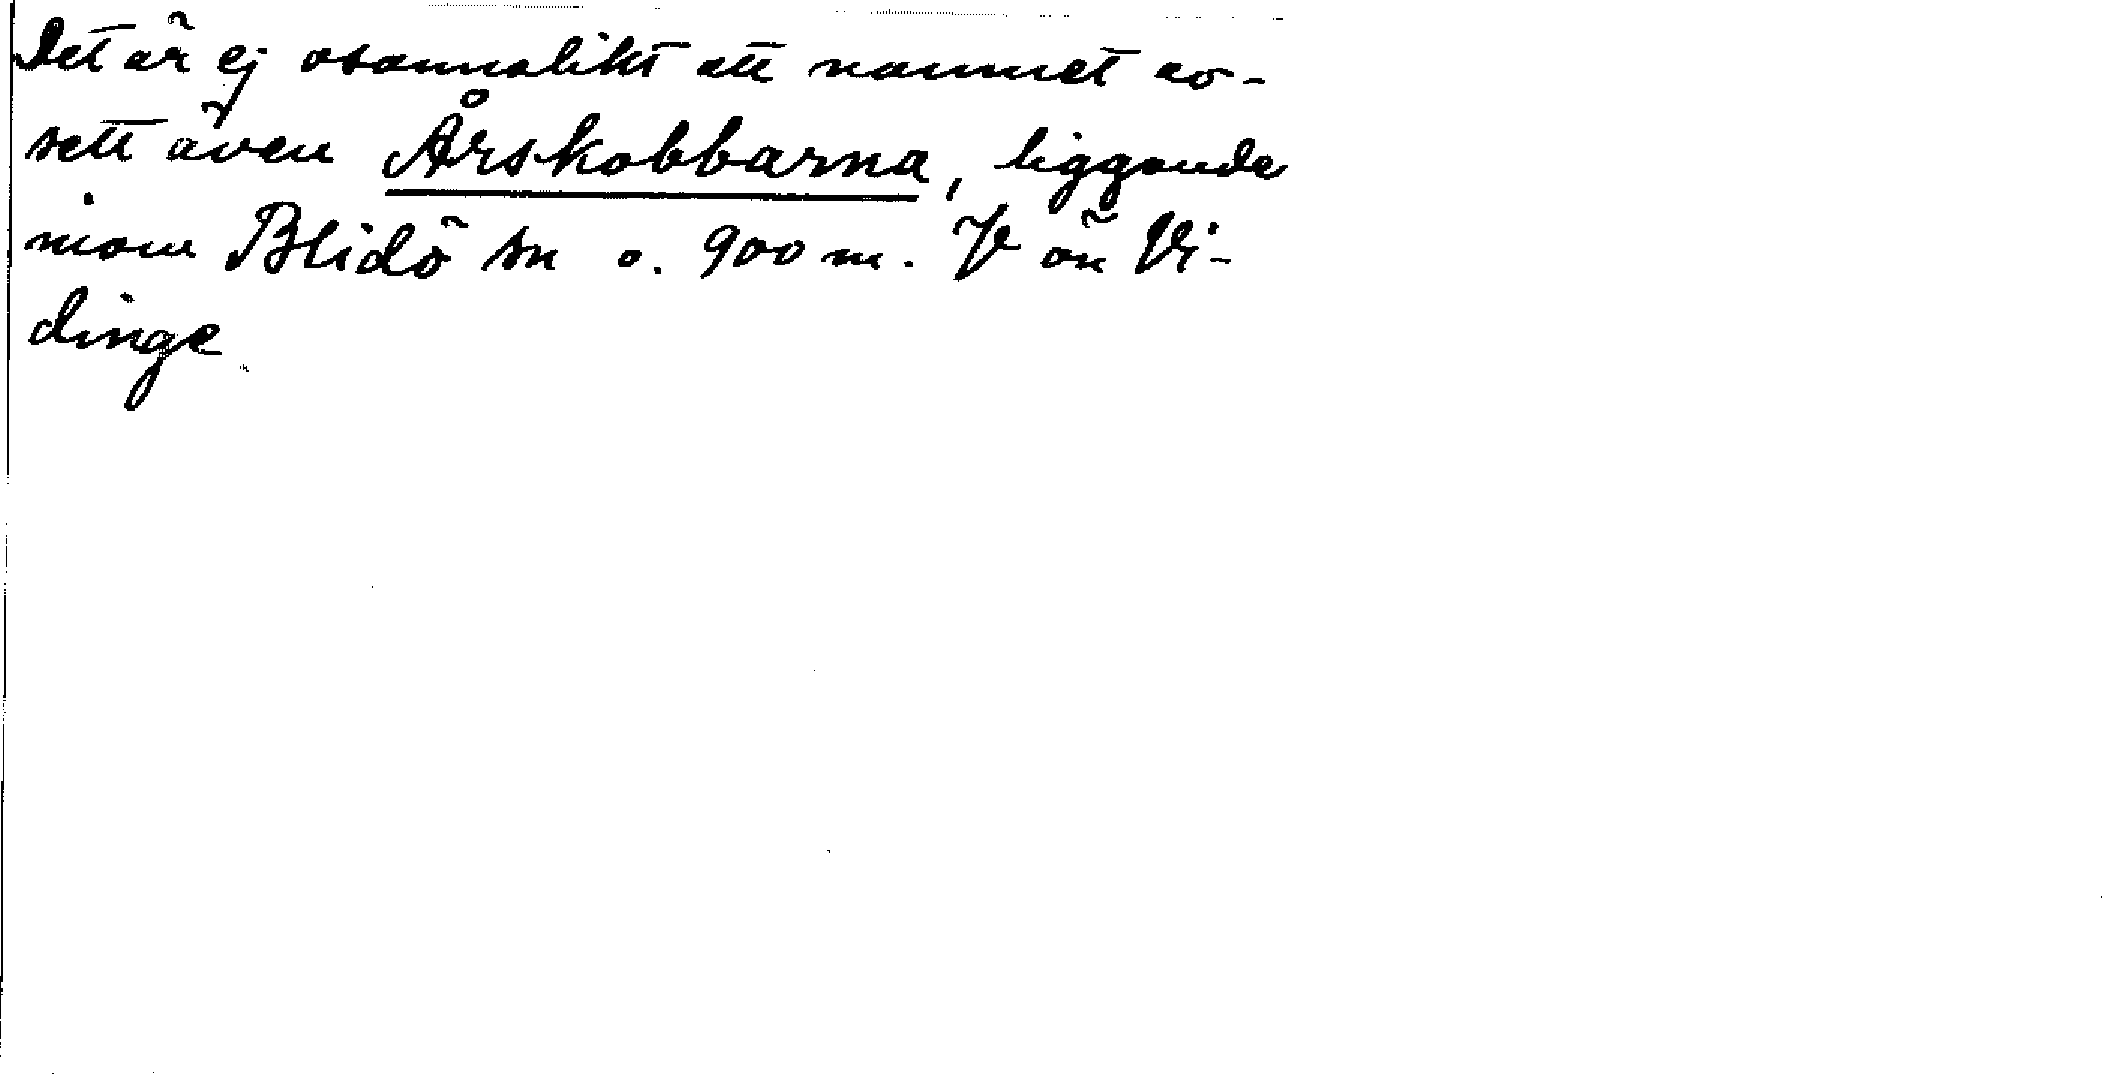 Det är ej osannolikt att namnet av-
sett även Årskobbarna, liggande
inom Blidö sn o. 900 m. V ön Vi-
dinge